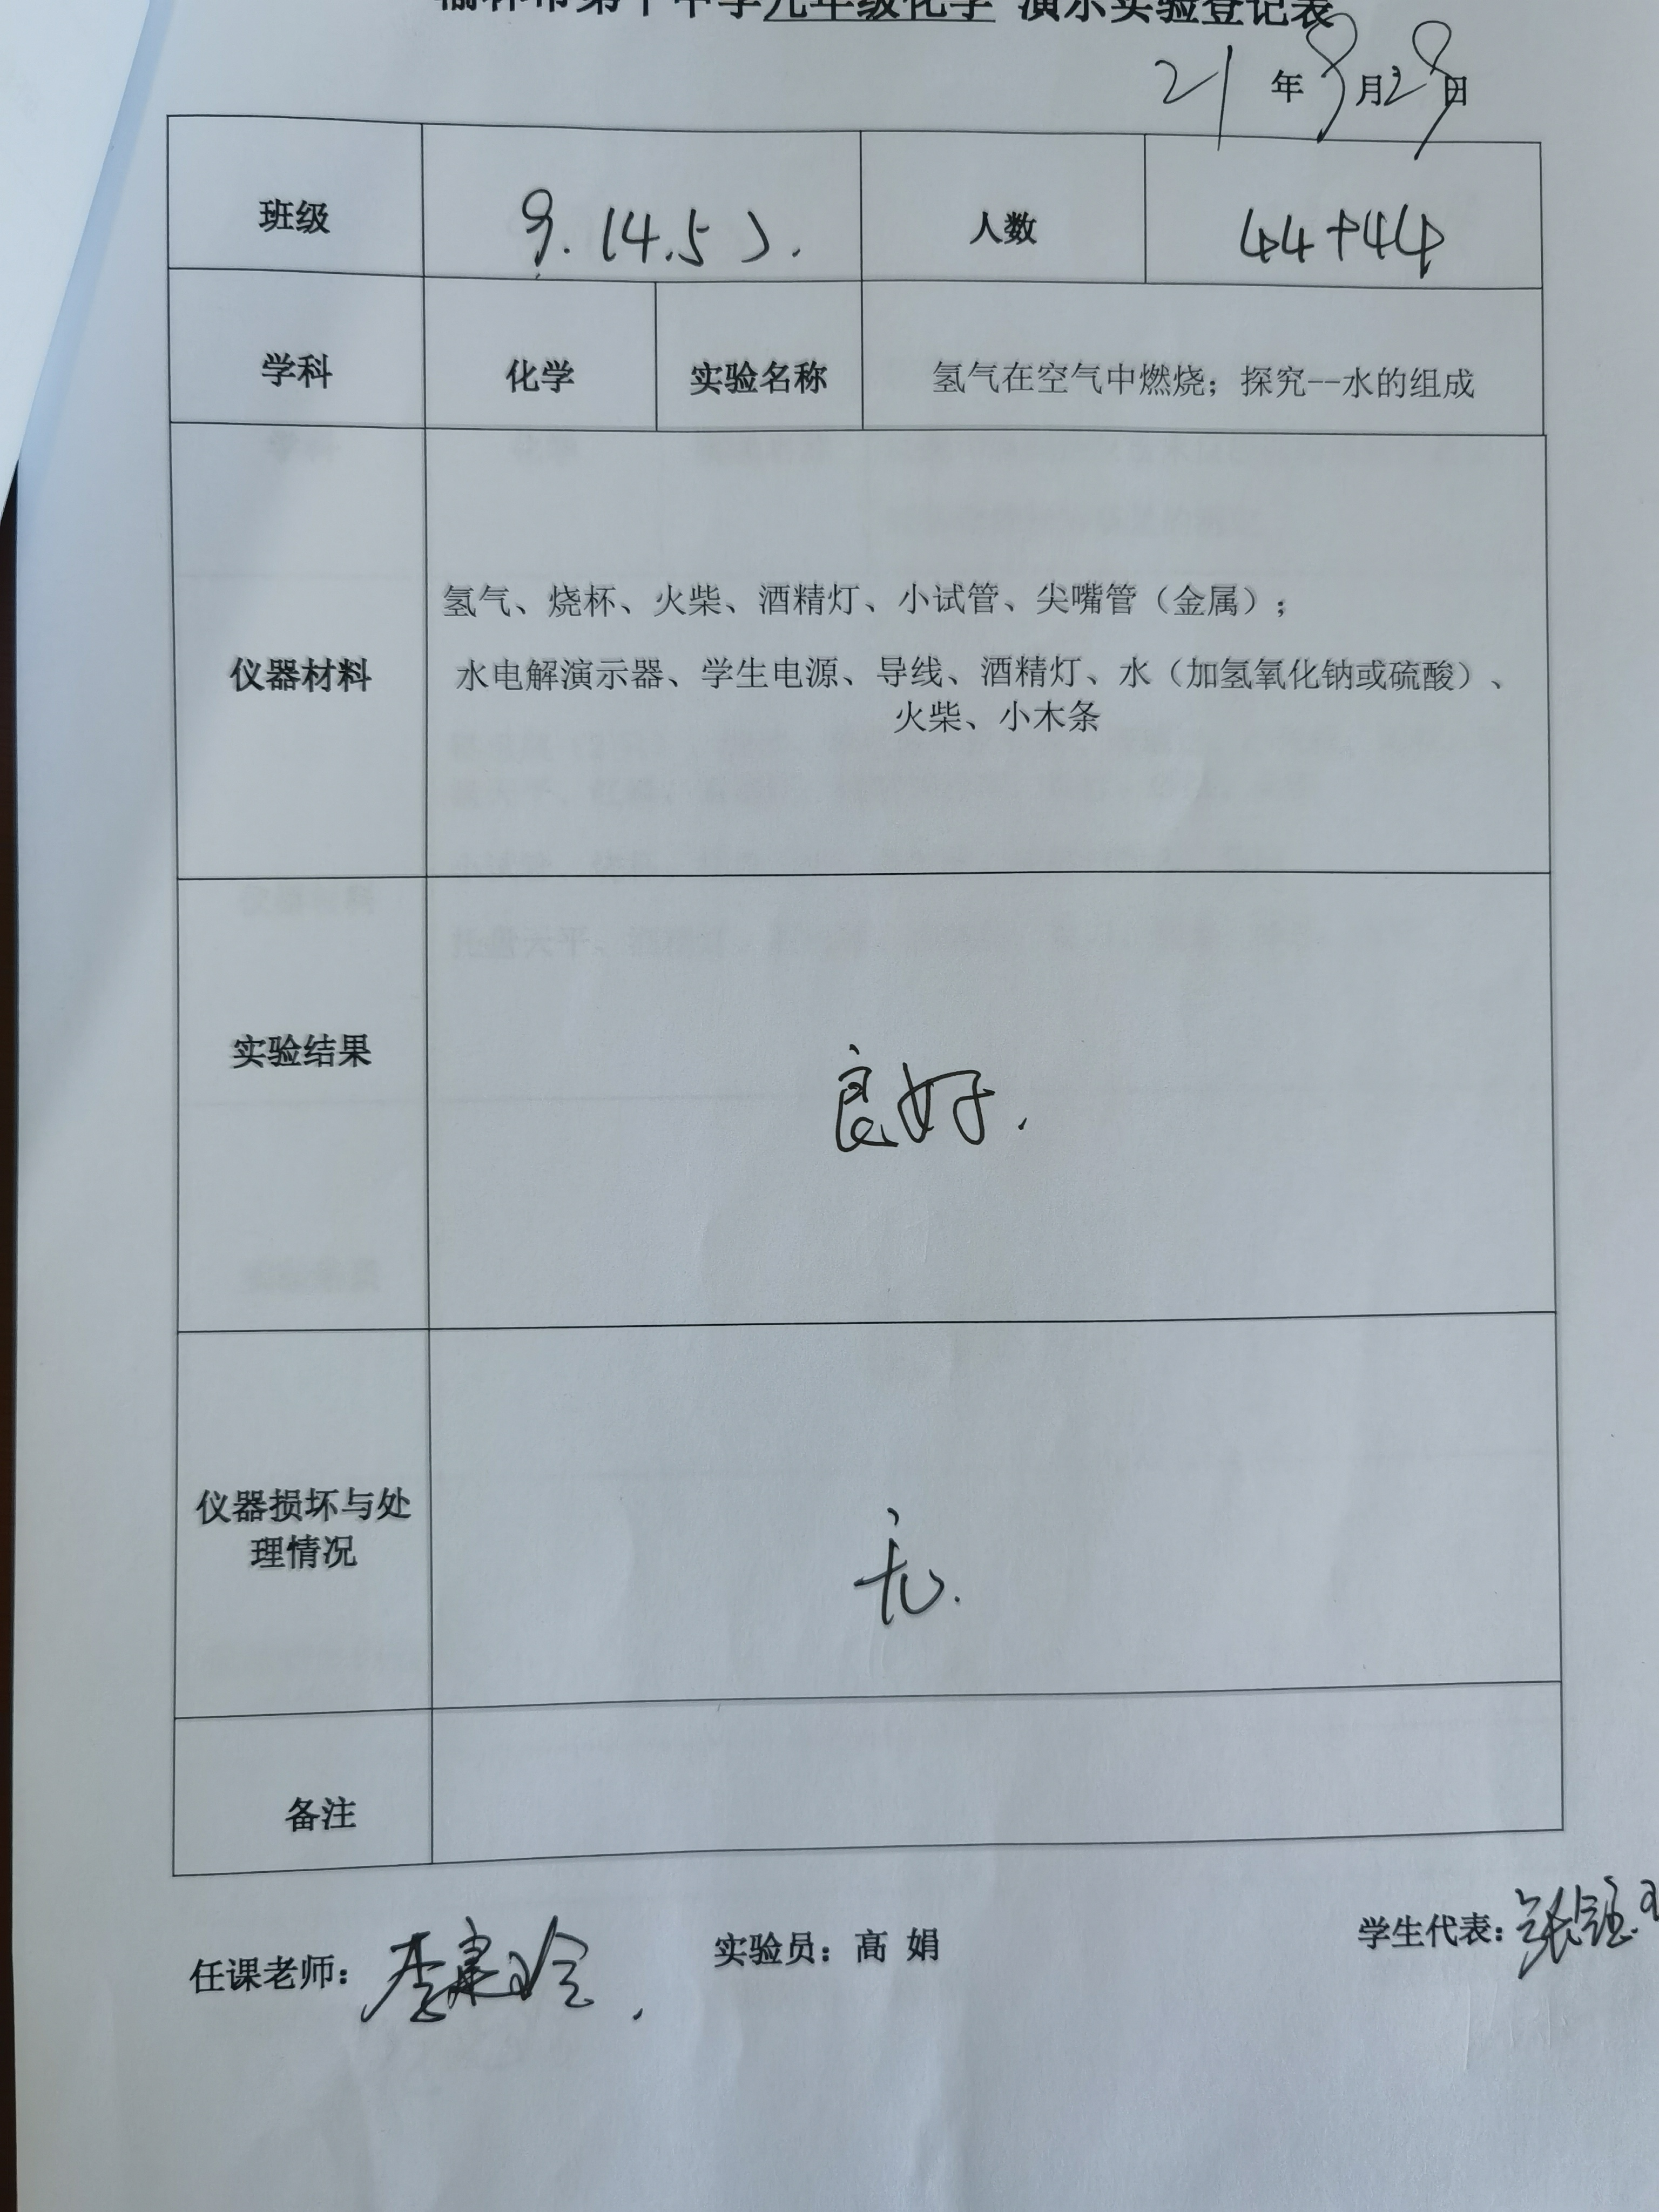 榆林市第十中学九年级化学 演示实验登记表
21 年 9 月 29 日
班级 9.(4.5). 人数 44+44
学科 化学 实验名称 氢气在空气中燃烧；探究--水的组成
仪器材料
氢气、烧杯、火柴、酒精灯、小试管、尖嘴管（金属）；
水电解演示器、学生电源、导线、酒精灯、水（加氢氧化钠或硫酸）、
火柴、小木条
实验结果 良好.
仪器损坏与处
理情况
无.
备注
任课老师： 实验员：高 娟 学生代表：